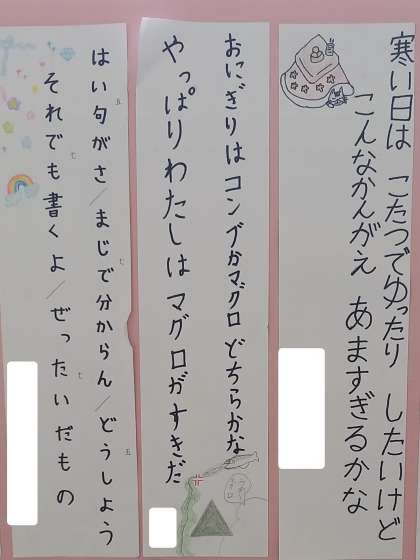 寒い日は こたつでゆったり したいけど
こんなかんがえ あますぎるかな
おにぎりは コンブかマグロ どちらかな
やっぱりわたしは マグロがすきだ
はい句がさ／まじで分からん／どうしよう
五
七
五
それでも書くよ／ぜったいだもの
七
七